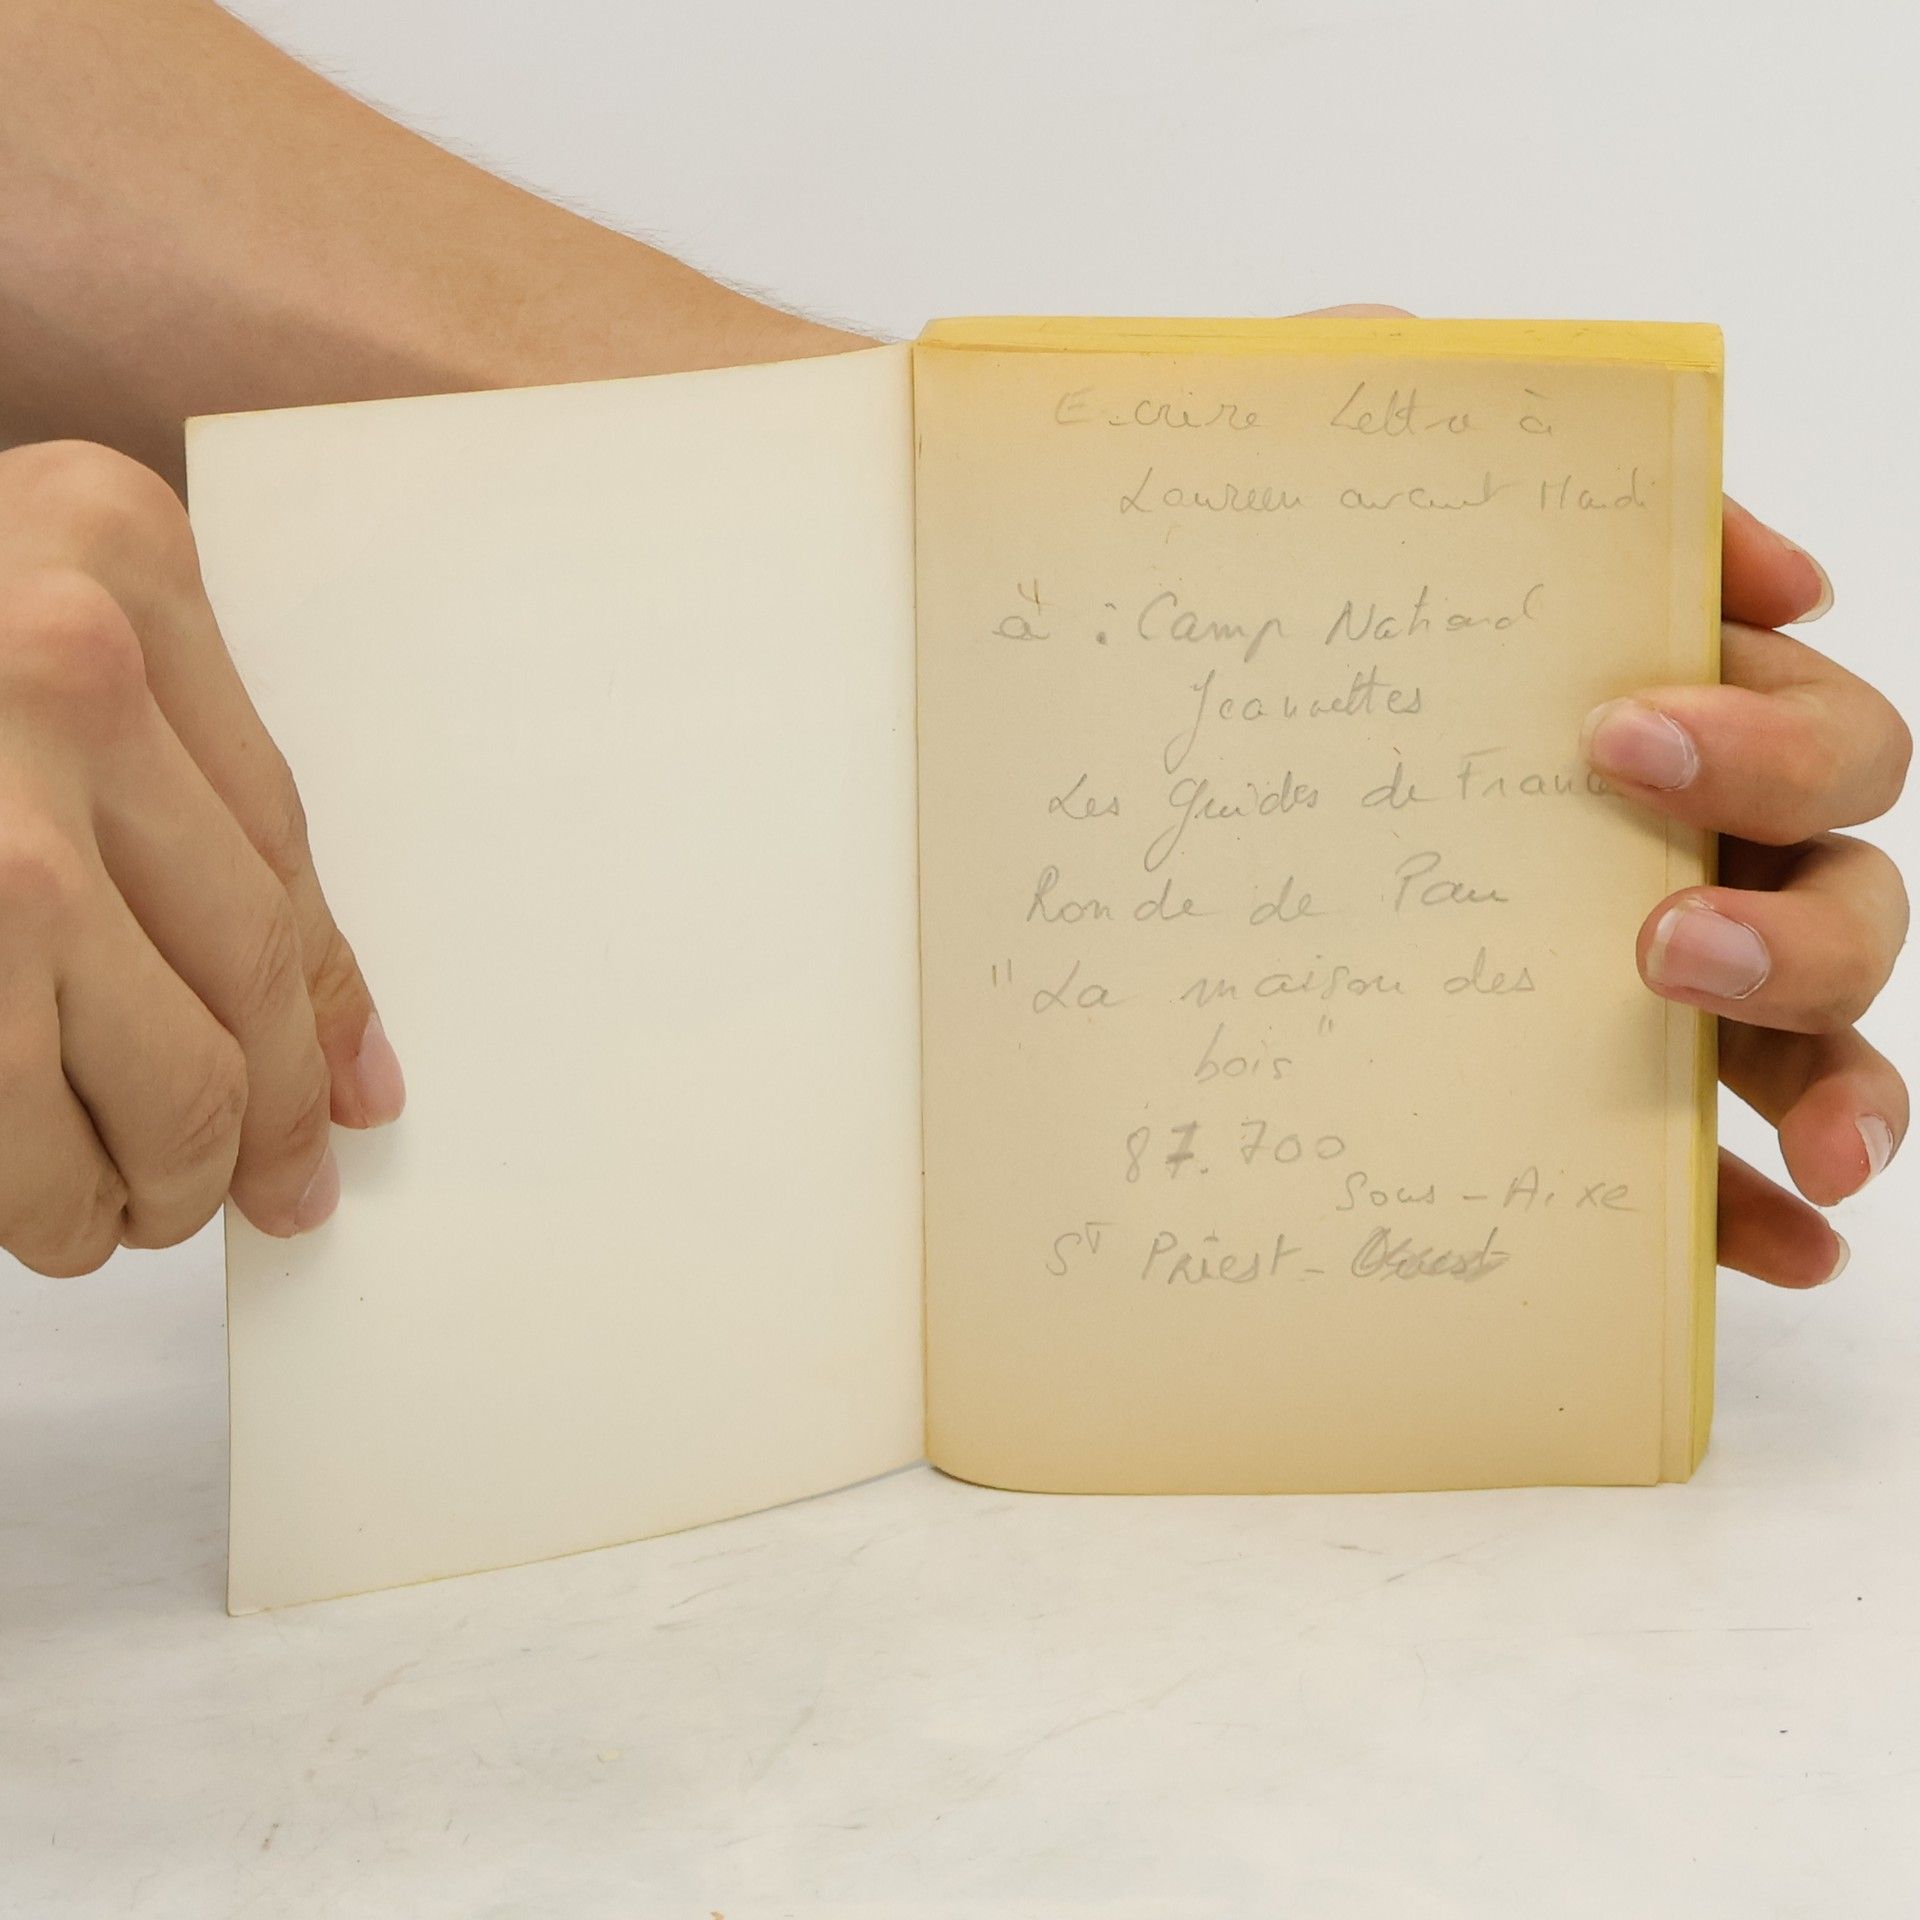 Ecrire Lettre à
Laureen avant Mardi
à : Camp National
Jeannettes
Les Guides de France
Ronde de Pau
"La maison des
bois"
87.700
Sous-Aixe
St Priest-